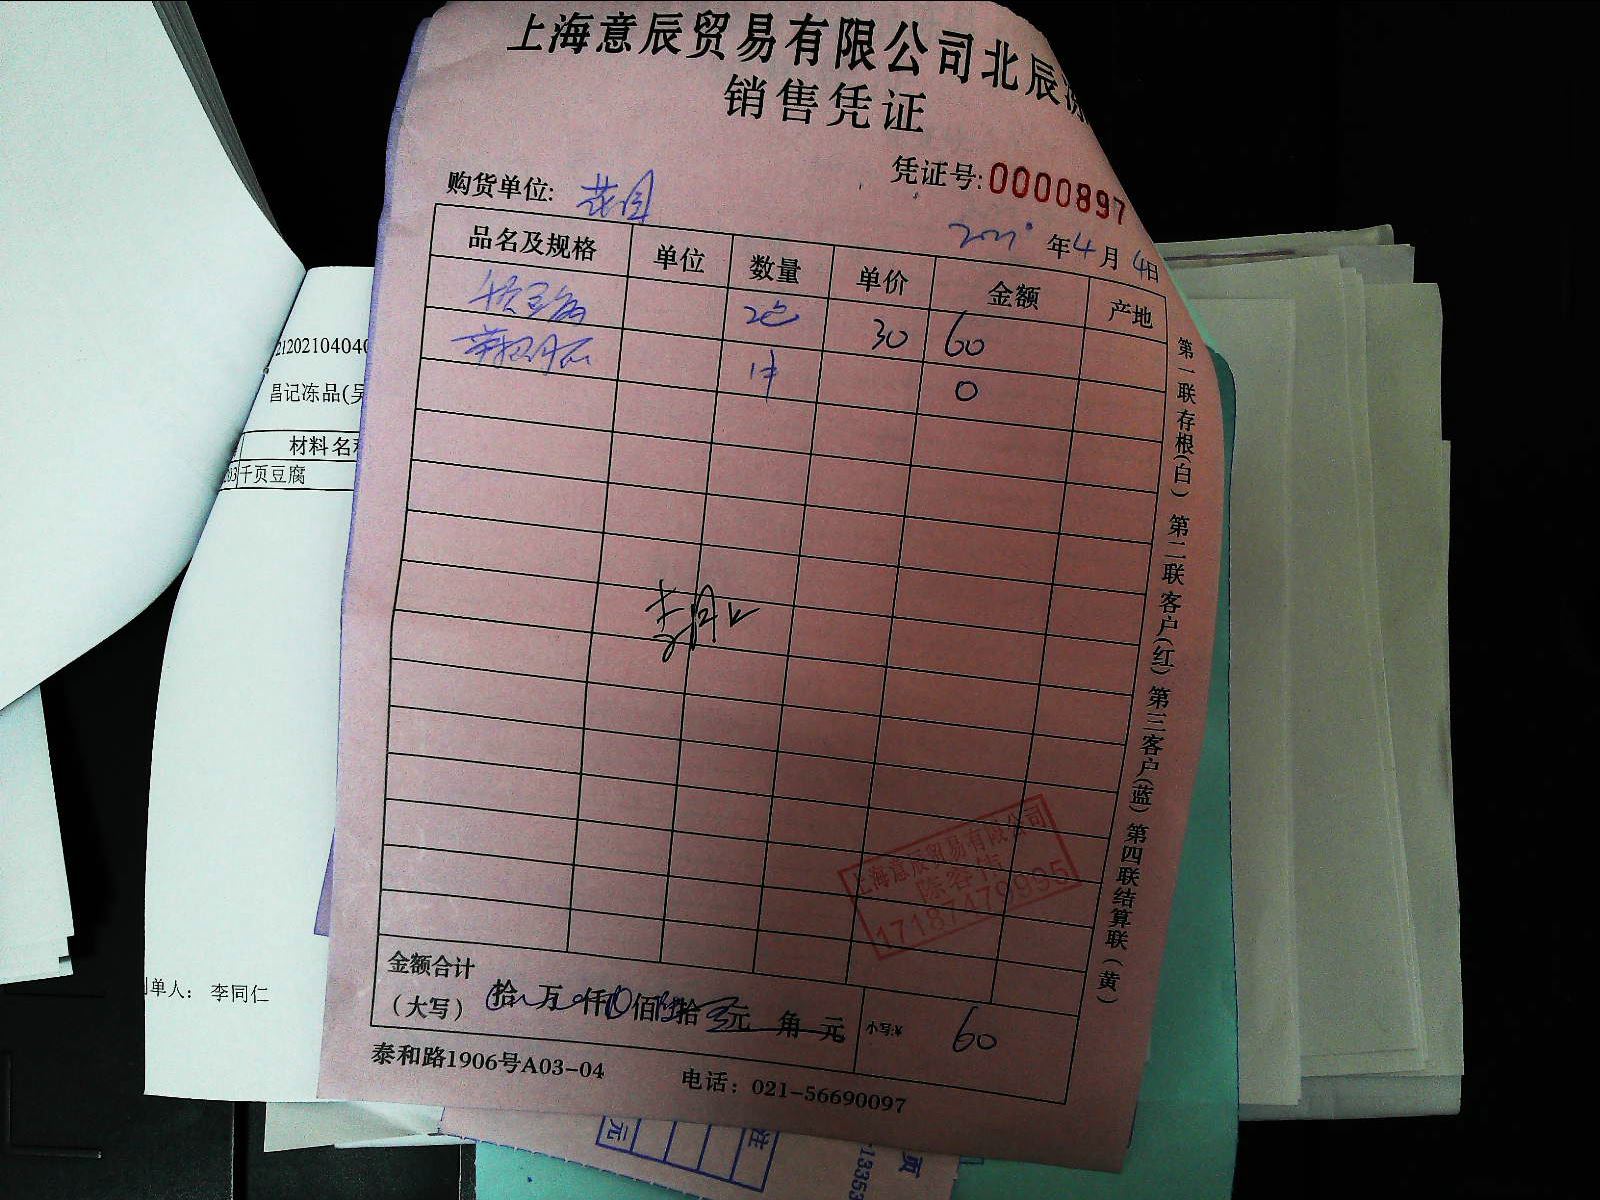 上海意辰贸易有限公司北辰冻
销售凭证
凭证号:0000897
购货单位: 花园
2021年4月4日
品名及规格 单位 数量 单价 金额 产地
2包 30 60
1件 0
金额合计
(大写) 拾 万 仟 佰 拾 元 角 元 小写:¥ 60
泰和路1906号A03-04 电话: 021-56690097
第一联存根(白) 第二联客户(红) 第三客户(蓝) 第四联结算联(黄)
上海意辰贸易有限公司
陈容伟
17187479995
21202104040
昌记冻品(吴
材料名称
千页豆腐
制单人: 李同仁
元
注
页
-13353